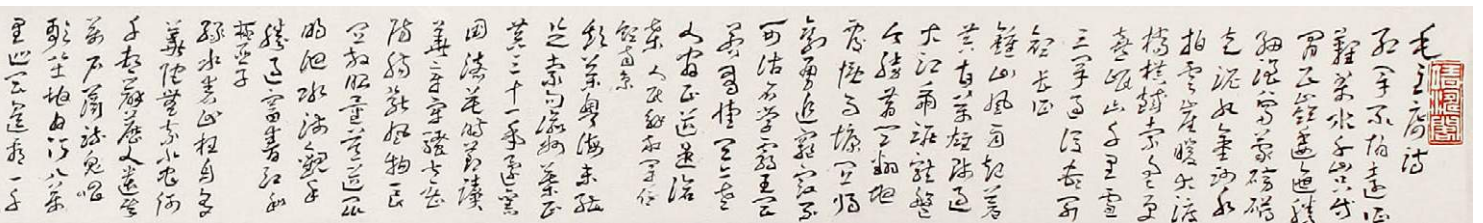 毛主席诗
红军不怕远征
難萬水千山只等
閒五嶺逶迤騰
細浪烏蒙磅礴
走泥丸金沙水
拍雲崖暖大渡
橋横鐵索寒更
喜岷山千里雪
三军過後盡開
顔長征
鍾山風雨起蒼
黄百萬雄師過
大江虎踞龍盤
今勝昔天翻地
覆慨而慷宜將
剩勇追窮寇不
可沽名學霸王天
若有情天亦老
人間正道是滄
桑 人民解放军佔
領南京
飲茶粤海未能
忘索句渝州葉正
黄三十一年還舊
國落花時節讀
華章牢騷太盛
防腸斷風物長
宜放眼量莫道昆
明池水淺觀魚
勝過富春江 和
柳亞子
緑水青山枉自多
華佗無奈小虫何
千村薜荔人遺矢
萬户蕭疏鬼唱
歌坐地日行八萬
里巡天遥看一千